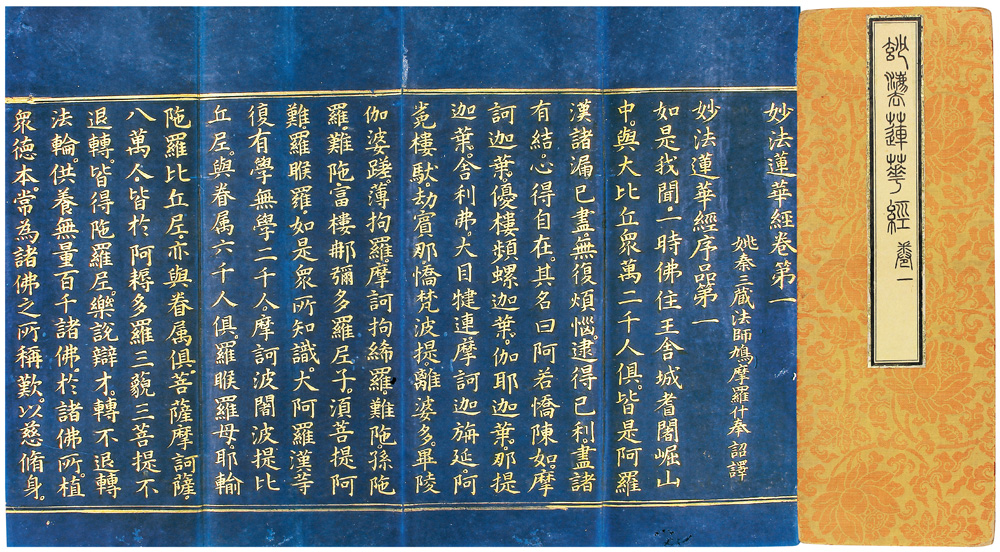 妙法蓮華經 卷一
妙法蓮華經卷第一
姚秦三藏法師鳩摩羅什奉 詔譯
妙法蓮華經序品第一
如是我聞。一時佛住王舍城耆闍崛山
中。與大比丘眾萬二千人俱。皆是阿羅
漢諸漏已盡。無復煩惱。逮得己利。盡諸
有結。心得自在。其名曰阿若憍陳如。摩
訶迦葉。優樓頻螺迦葉。伽耶迦葉。那提
迦葉。舍利弗。大目犍連。摩訶迦旃延。阿
㝹樓馱。劫賓那。憍梵波提。離婆多。畢陵
伽婆蹉。薄拘羅。摩訶拘絺羅。難陁。孫陁
羅難陁。富樓那彌多羅尼子。須菩提。阿
難。羅睺羅。如是眾所知識。大阿羅漢等。
復有學無學二千人。摩訶波闍波提比
丘尼。與眷属六千人俱。羅睺羅母。耶輸
陁羅比丘尼。亦與眷属俱。菩薩摩訶薩。
八萬人。皆於阿耨多羅三藐三菩提不
退轉。皆得陁羅尼。樂說辯才。轉不退轉
法輪。供養無量百千諸佛。於諸佛所。植
眾德本。常為諸佛之所稱歎。以慈脩身。